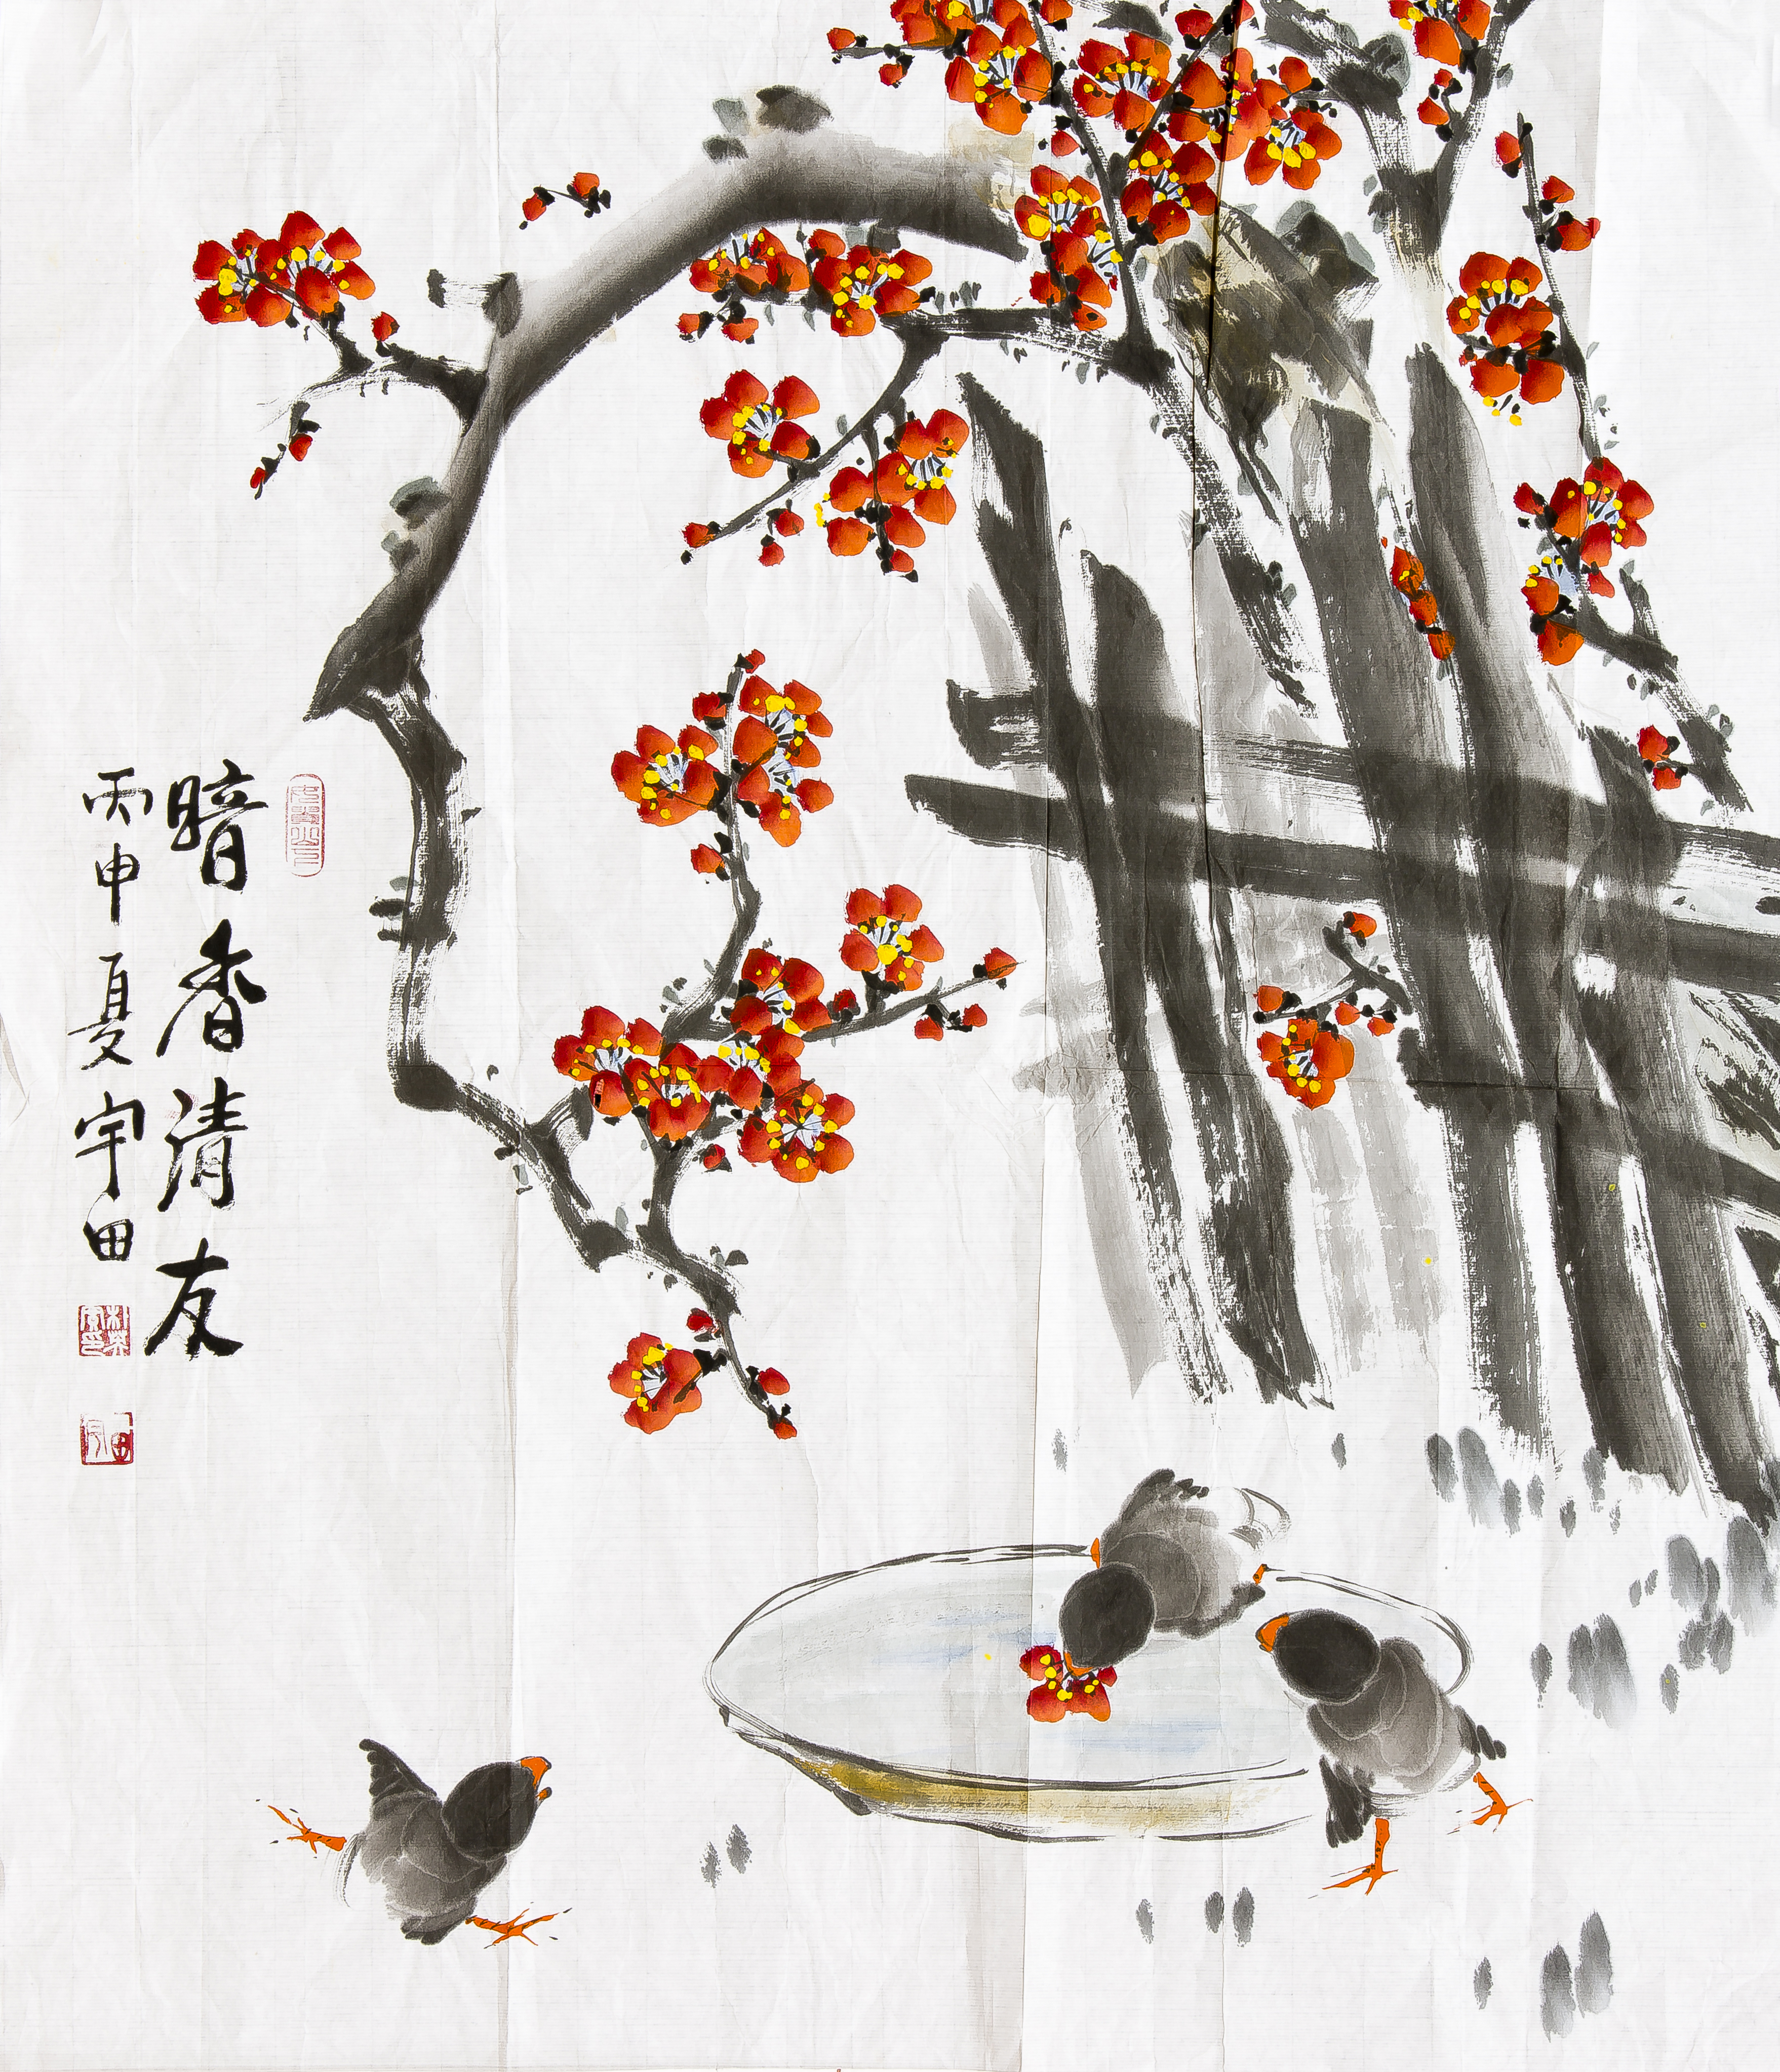 暗香清友
丙申夏宇田